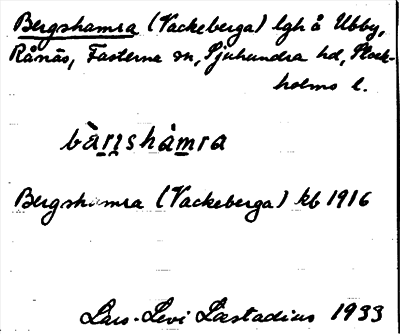 Bergshamra (Vackeberga) lgh å Ubby,
Rånäs, Fasterna sn, Sjuhundra hd, Stock-
holms l.
bàr̥i̥shàm̲ra
Bergshamra (Vackeberga) kb 1916
Lars-Levi Læstadius 1933